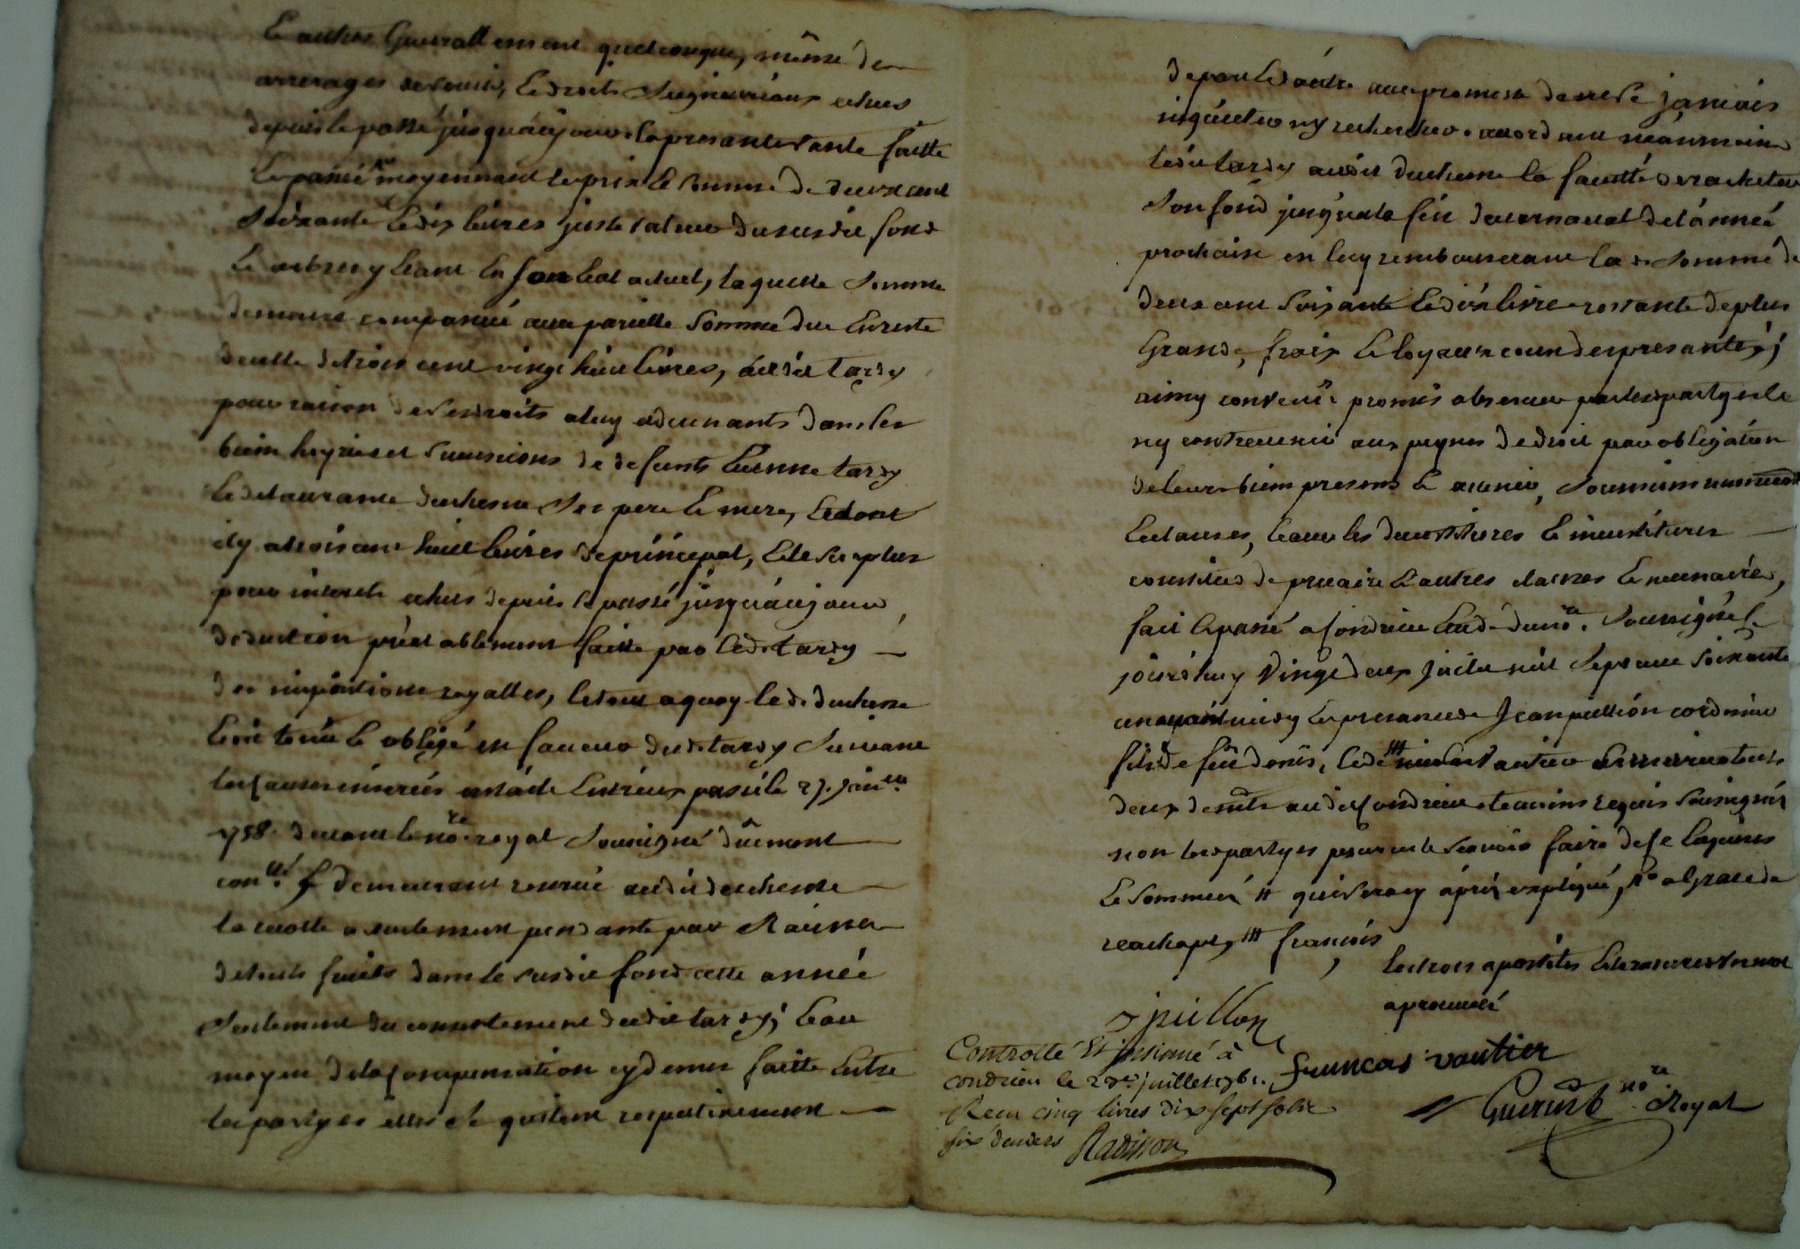 et autres Generallement quelconque, même de
arrerages de servis, et droits Seigneuriaux echus
depuis le passé jusqu'aujourd. la presante vante faitte
et passée moyennant le prix et somme de deux cent
Soixante et dix livres juste valeur du susdit fond
et arbres y etant en son etat actuel, laquelle Somme
demeure compansée avec pareille Somme due en reste
de celle de trois cent vingt huit livres, audit tardy
pour raison de ses droits a luy advenants dans les
biens hoyries et successions de defunts Etienne tardy
et de laurance duchesne Ses pere et mere, et dont
il y a trois cent huit livres de principal, et le surplus
pour interets echus depuis le passé jusqu'aujourd
deduction préalablement faitte par led. tardy —
des impositions royalles, le tout a quoy le d. duchesne
etoit tenu et obligé en faveur dud. tardy Suivant
les causes inserées en l'acte entr'eux passé le 27. janer
1758. devant le nore royal Soussigné dûement
conllé. demeurant reservé audit duchesne —
la recolte actuelement pendante par Racines
de touts fruits dans le susdit fond cette année
Seulement du consentement dudit tardy; et au
moyen de la compensation cy dessus faitte entre
les partyes elles se quittent respectivement —
de part et d'autre avec promesse de ne se jamais
inquieter ny rechercher. accordant neanmoins
ledit tardy audit duchesne la faculté de racheter
Son fond jusqu'a la fin du carnaval de l'année
prochaine en luy remboursant la d. Somme de
deux cent Soixante et dix livres restante de plus
Grande, frais et loyaux couts des presantes;
ainsy convenu promis observer par les partyes et
ny contrevenir aux peynes de droit par obligation
de leurs biens presents et avenir, Soumissions renonciations
et clauses, avec les devestitures et investitures —
constitut de precaire et autres clauses et necessaires,
fait et passé a Condrieu etude du nore. Soussigné le
jourd'huy Vingt deux juillet mil Sept cent Soixante
un avant midy en presance de Jean pullion cordonnier
fils de feu denis, et de ### nicolas Vautier
deux demts audit Condrieu temoins requis Soussignés
non les partyes pour ne le Scavoir faire de ce Enquises
et Sommées # qui sera cy après expliqué, ## a Grace de
reachapt, ### françois
les trois apostilles et la rature d'un mot
aprouvée
jpullon
Controllé Et insinué à
Condrieu le 22e juillet 1761.
Recu cinq livres dix sept sols
six deniers Radisson
francois vautier
Guerin nore. Royal